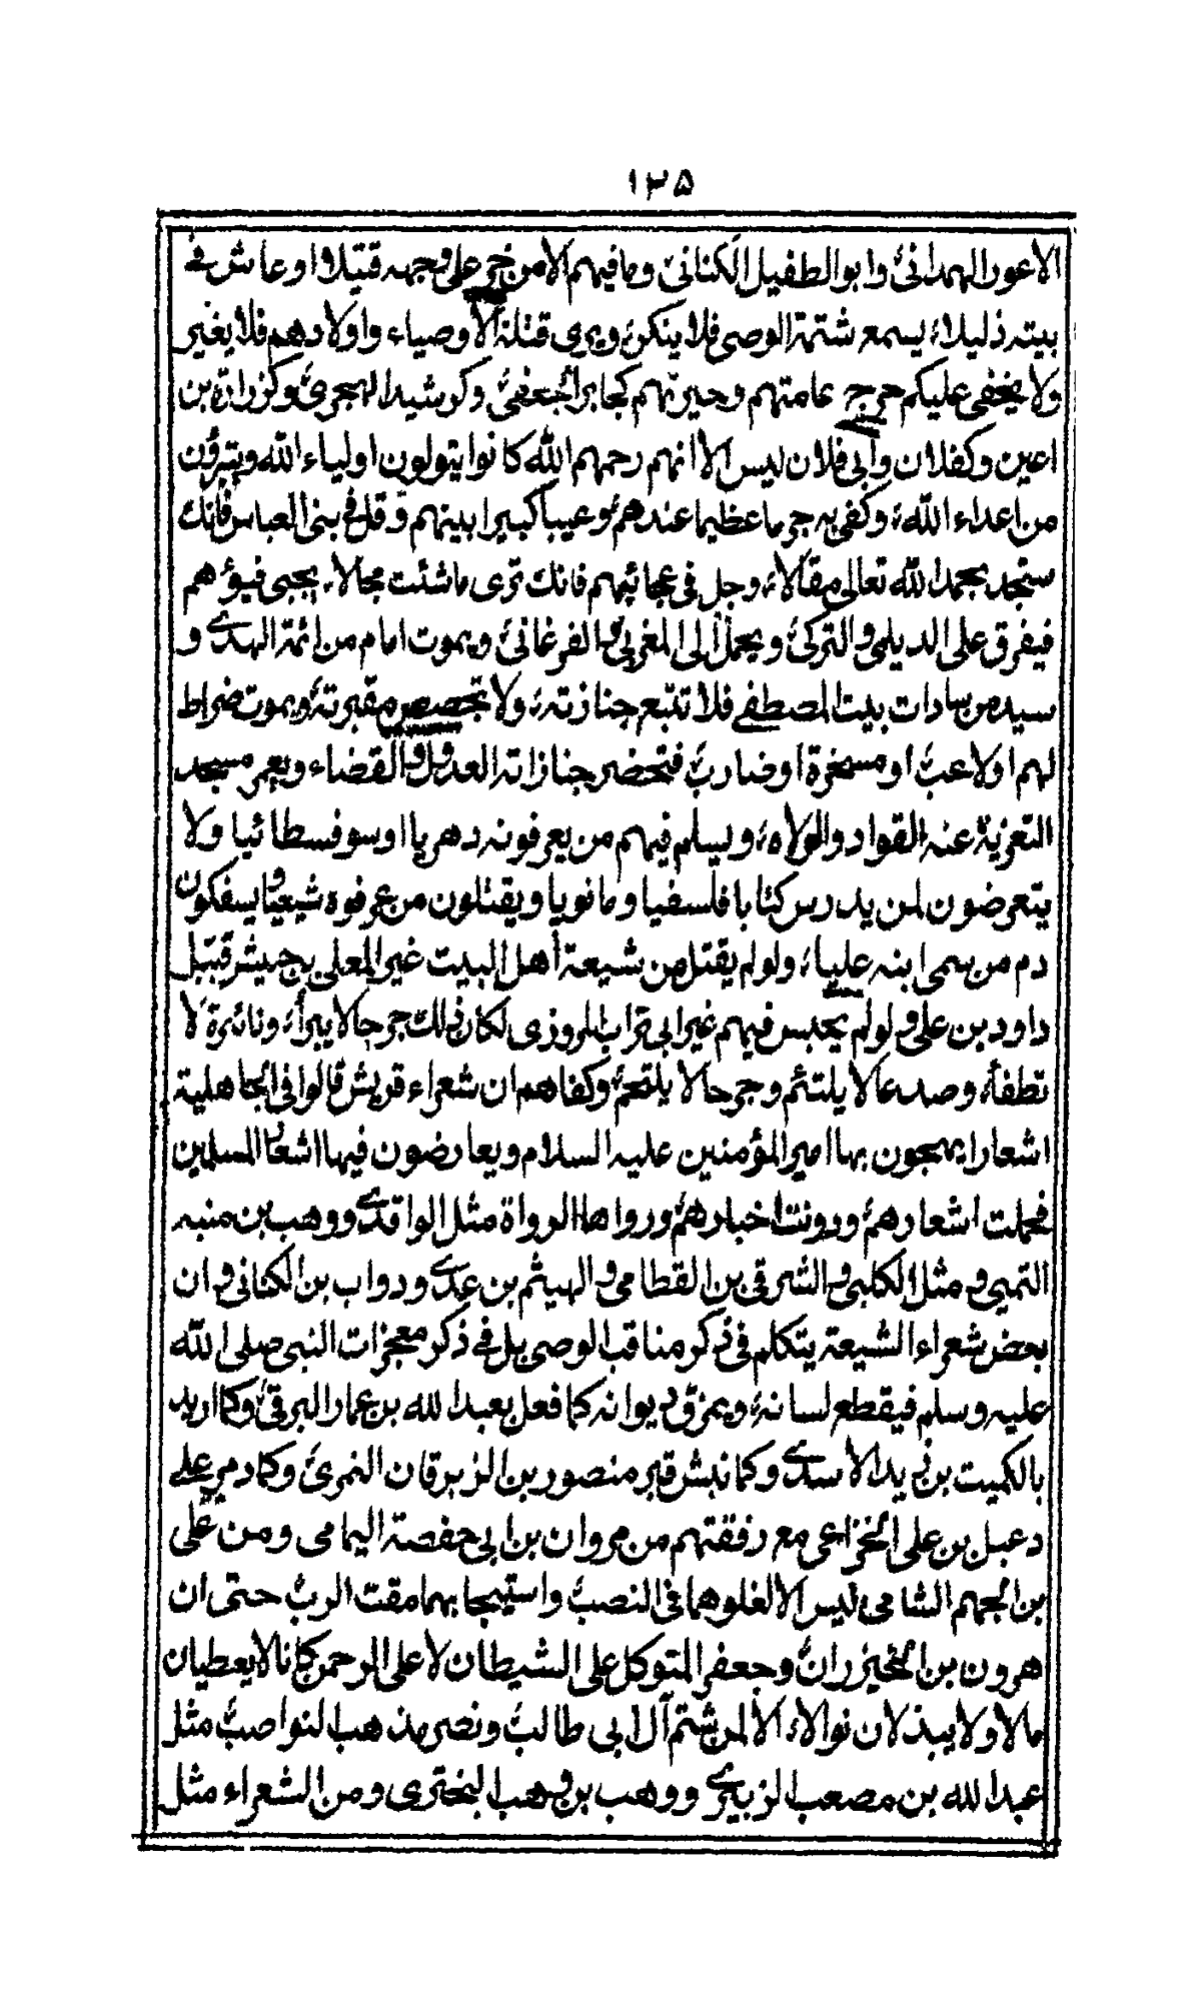 ١٣۵
الاعور الهمدانیؑ وابو الطفیل الکنانیؑ وما فیهم الا من خر علی وجهه قتیلا او عاش فے
بیته ذلیلاء یسمع شتمة الوصی فلا ینکر ویری قتلة الاوصیاء واولادهم فلا یغیر
ولا یخفی علیکم حرج عامتهم وحیرتهم کجابر الجعفی وکرشید الهجری وکزرارة بن
اعین وکفلان وابی فلان لیس الا انهم رحمهم الله کانوا یتولون اولیاء الله ویتبرؤن
من اعداء الله وکفی به جرما عظیما عندهم وعیبا کبیرا بینهم وقل فی بنی العباس فانك
ستجد بحمد الله تعالی مقالا وجل فی عجائبهم فانك تری ما شئت مجالا یجبی فیؤهم
فیفرق علی الدیلمی والترکی ویحمل الی المغربی والفرغانی ویموت امام من ائمة الهدے و
سید من سادات بیت المصطفے فلا تتبع جنازته ولا تجصص مقبرته ویموت ضراط
لهم او لاعب او مسخرة او ضارب فتحضر جنازته العدول والقضاء ویعمر مسجد
التعزیة عنه القواد والولاه ویسلم فیهم من یعرفونه دهریا او سوفسطائیا ولا
یتعرضون لمن یدرس کتابا فلسفیا ومانویا ویقتلون من عرفوه شیعیا ویسفکون
دم من سمی ابنه علیا ولو لم یقتل من شیعة أهل البیت غیر المعلی بن حبیش قتیل
داود بن علی ولو لم یحبس فیهم غیر ابی تراب المروزی لکان ذلك جرحا لا یبرأ ونائرة لا
تطفأ وصدعا لا یلتئم وجرحا لا یلتحم وکفاهم ان شعراء قریش قالوا فی الجاهلیة
اشعارا یهجون بها امیر المؤمنین علیه السلام ویعارضون فیها اشعار المسلمین
فحملت اشعارهم ودونت اخبارهم ورواها الرواة مثل الواقدے ووهب بن منبه
التمیمی ومثل الکلبی والشرقی بن القطامی والهیثم بن عدے ودواب بن الکنانی وان
بعض شعراء الشیعة یتکلم فی ذکر مناقب الوصی بل فے ذکر معجزات النبی صلی الله
علیه وسلم فیقطع لسانه ویمزق دیوانه کما فعل بعبد الله بن عمار البرقی وکما ارید
بالکمیت بن زید الأسدے وکما نبش قبر منصور بن الزبرقان النمری وکما دمر علے
دعبل بن علی الخزاعی مع رفقتهم من مروان بن ابی حفصة الیمامی ومن علی
بن الجهم الشامی لیس الا لغلوهما فی النصب واستیجابهما مقت الرب حتی ان
هرون بن الخیزران وجعفر المتوکل علی الشیطان لا علی الرحمن کانا لا یعطیان
مالا ولا یبذلان نوالا الا لمن شتم آل ابی طالب ونصر مذهب النواصب مثل
عبد الله بن مصعب الزبیرے ووهب بن وهب البختری ومن الشعراء مثل